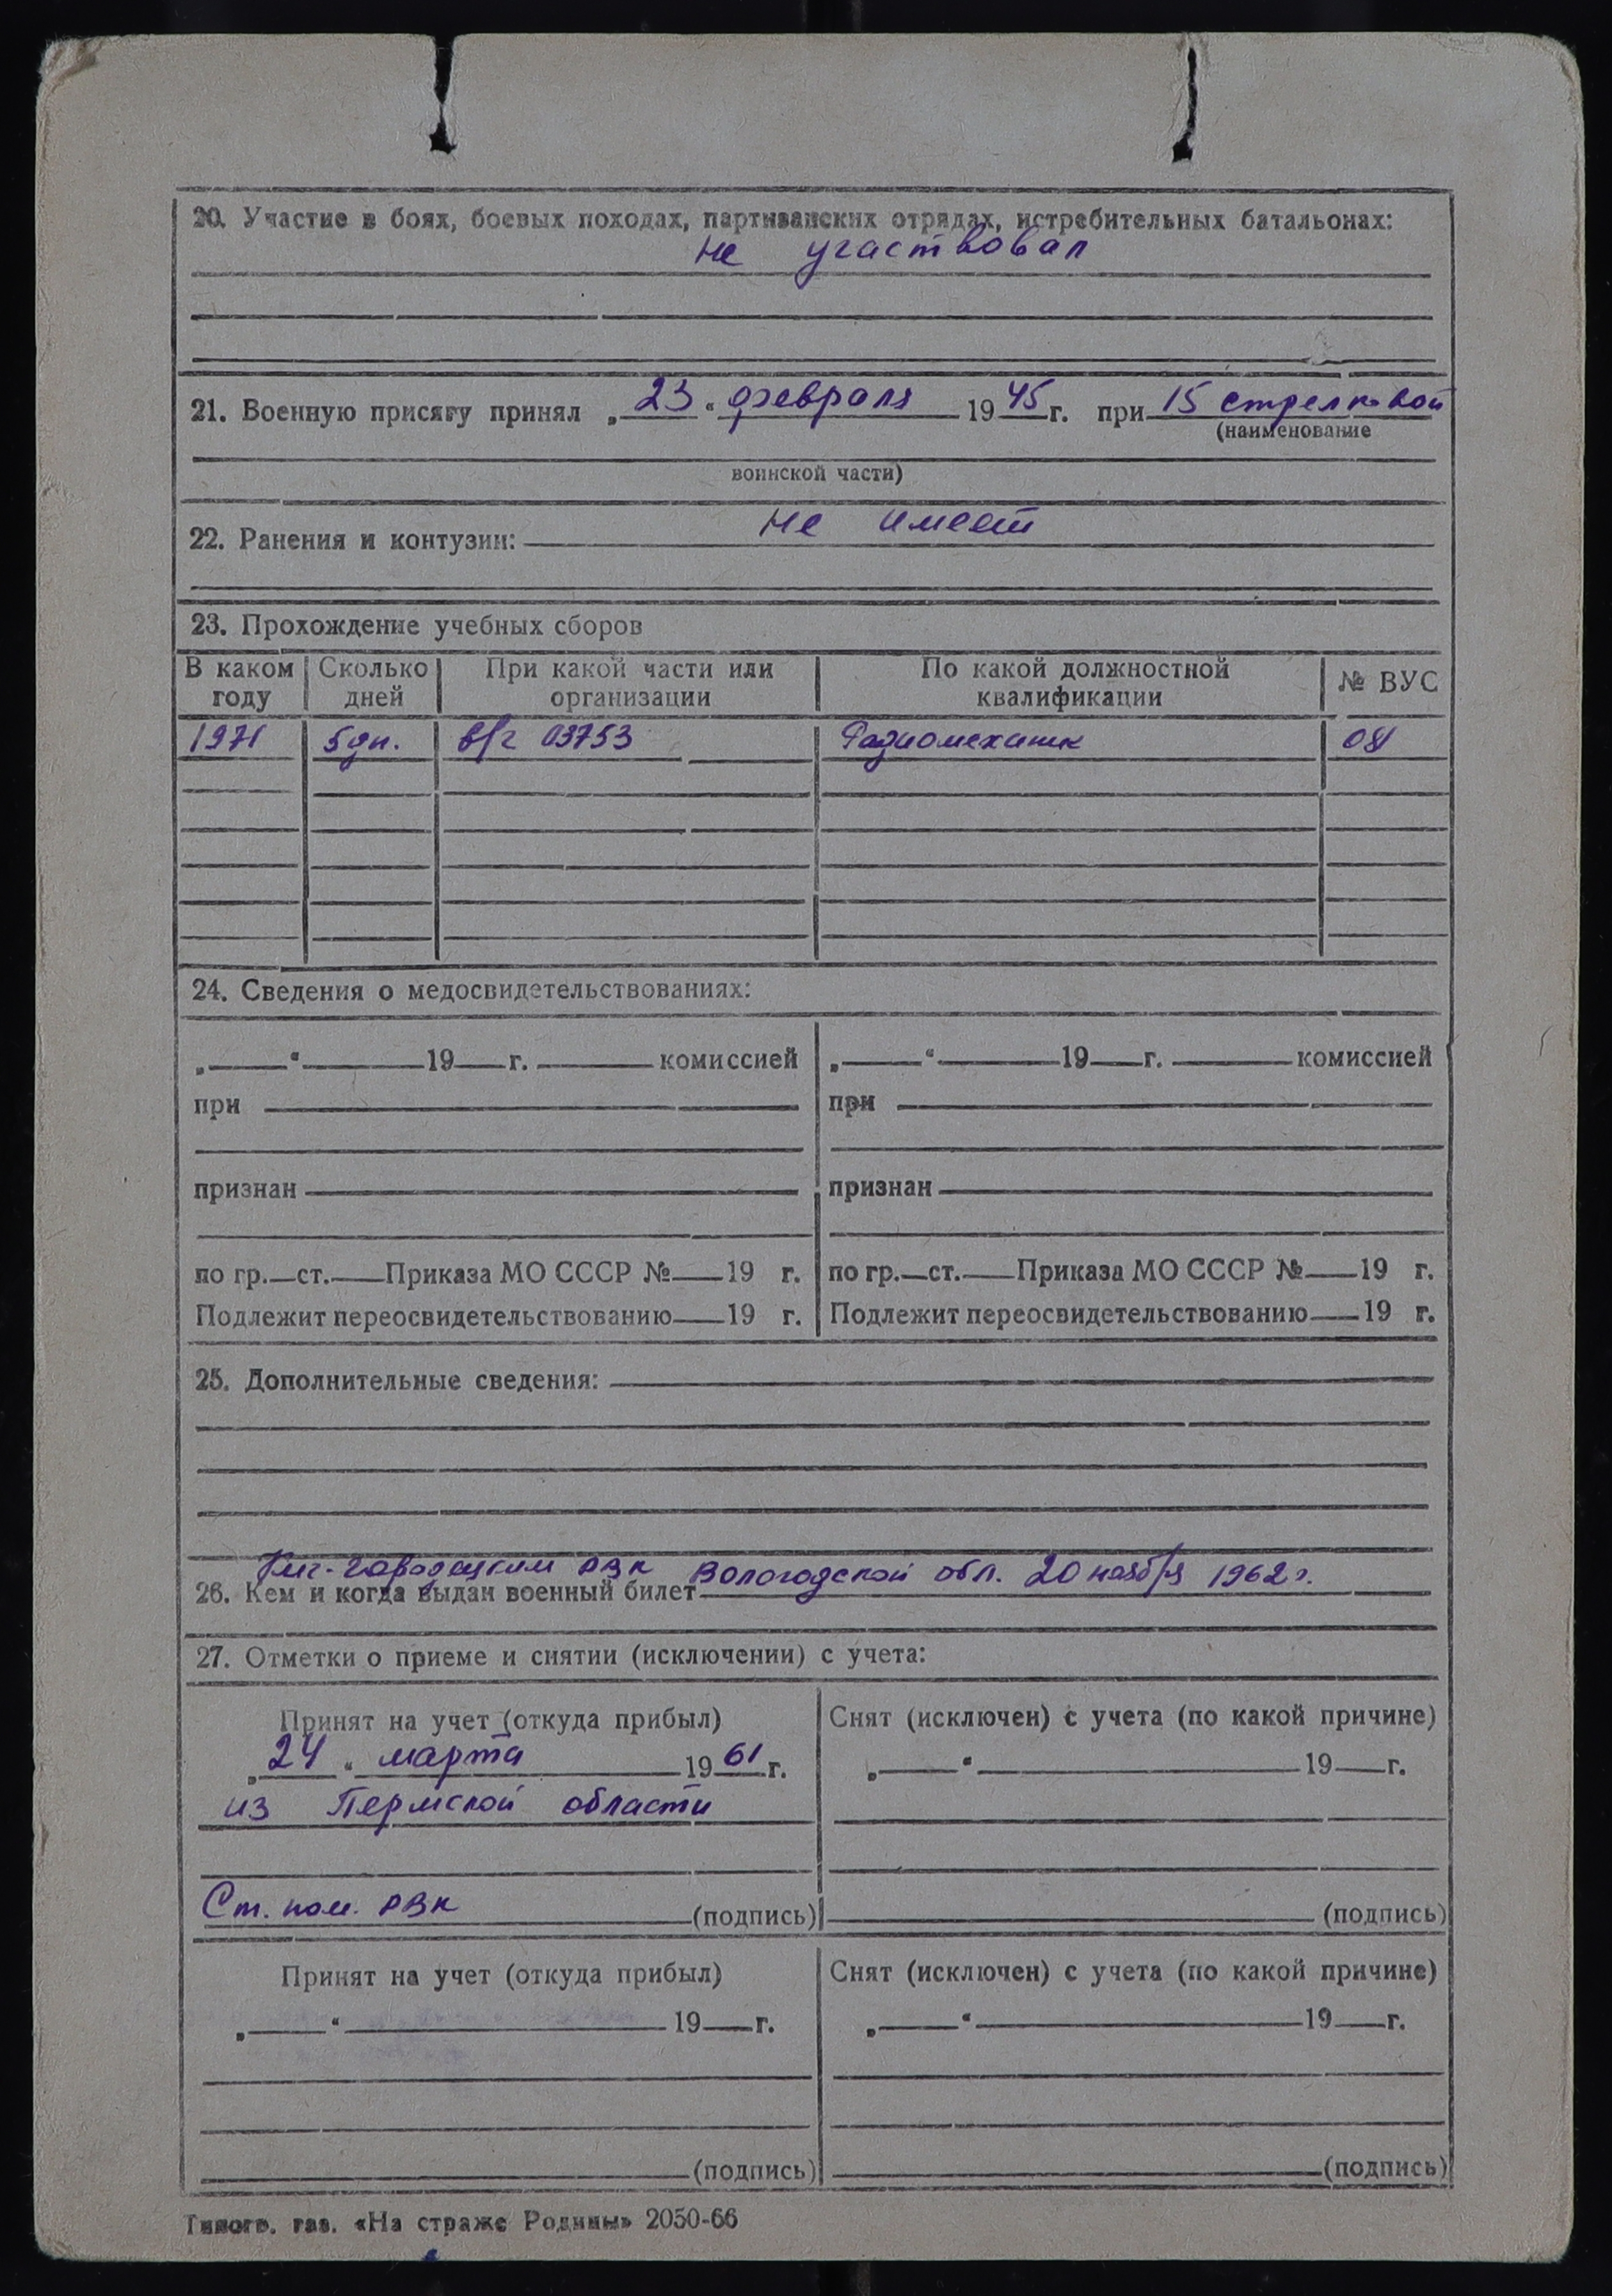 20. Участие в боях, боевых походах, партизанских отрядах, истребительных батальонах:
не участвовал
21. Военную присягу принял „23“ февраля 1945 г. при 15 стрелковой
(наименование
воинской части)
22. Ранения и контузии: не имеет
23. Прохождение учебных сборов
В каком году Сколько дней При какой части или организации По какой должностной квалификации № ВУС
1971 5 дн. в/ч 03753 Радиомеханик
24. Сведения о медосвидетельствованиях:
„ “ 19 г. комиссией „ “ 19 г. комиссией
при при
признан признан
по гр. ст. Приказа МО СССР № 19 г. по гр. ст. Приказа МО СССР № 19 г.
Подлежит переосвидетельствованию 19 г. Подлежит переосвидетельствованию 19 г.
25. Дополнительные сведения:
Кич-Городецким РВК Вологодской обл. 20 ноября 1962 г.
26. Кем и когда выдан военный билет
27. Отметки о приеме и снятии (исключении) с учета:
Принят на учет (откуда прибыл) Снят (исключен) с учета (по какой причине)
„24“ марта 1961 г. „ “ 19 г.
из Пермской области
Ст. пом. РВК (подпись) (подпись)
Принят на учет (откуда прибыл) Снят (исключен) с учета (по какой причине)
„ “ 19 г. „ “ 19 г.
(подпись) (подпись)
Типогр. газ. «На страже Родины» 2050-66